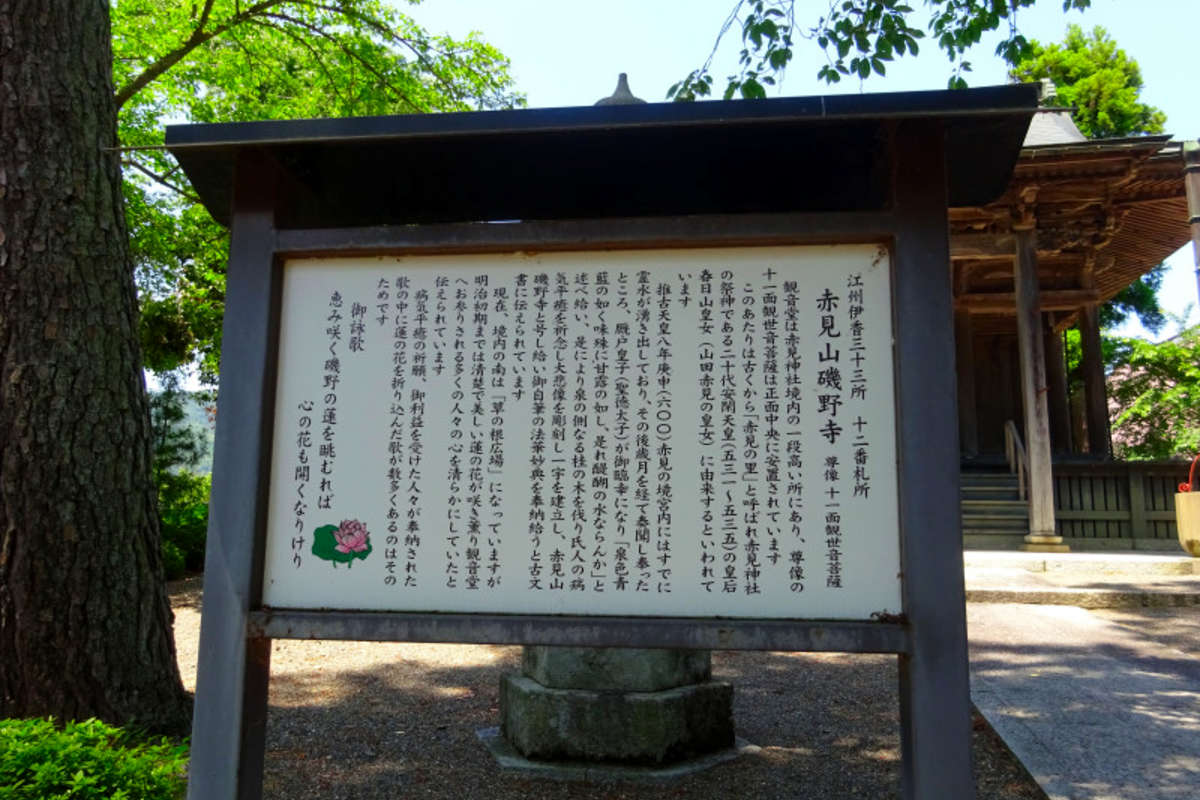 江州伊香三十三所 十二番札所
赤見山磯野寺 尊像 十一面観世音菩薩
観音堂は赤見神社境内の一段高い所にあり、尊像の
十一面観世音菩薩は正面中央に安置されています
このあたりは古くから「赤見の里」と呼ばれ赤見神社
の祭神である二十代安閑天皇(五三一〜五三五)の皇后
春日山皇女(山田赤見の皇女)に由来するといわれて
います
推古天皇八年庚申(六〇〇)赤見の境宮内にはすでに
霊水が湧き出しており、その後歳月を経て奏聞し奉った
ところ、厩戸皇子(聖徳太子)が御臨幸になり「泉色青
藍の如く味殊に甘露の如し、是れ醍醐の水ならんか」と
述べ給い、是により泉の側なる桂の木を伐り氏人の病
気平癒を祈念し大悲像を彫刻し一宇を建立し、赤見山
磯野寺と号し給い御自筆の法華妙典を奉納給うと古文
書に伝えられています
現在、境内の南は「草の根広場」になっていますが
明治初期までは清楚で美しい蓮の花が咲き薫り観音堂
へお参りされる多くの人々の心を清らかにしていたと
伝えられています
病気平癒の祈願、御利益を受けた人々が奉納された
歌の中に蓮の花を折り込んだ歌が数多くあるのはその
ためです
御詠歌
恵み咲く磯野の蓮を眺むれば
心の花も開くなりけり